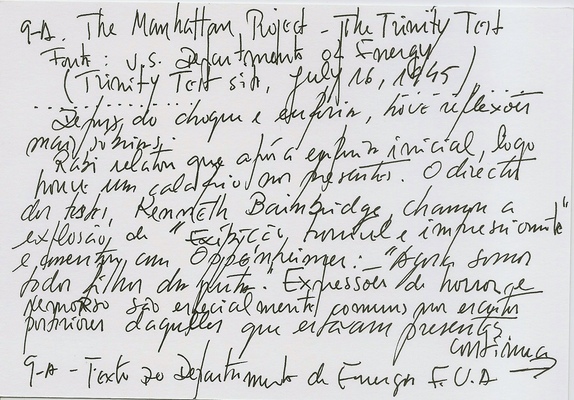 9-A. The Manhattan Project - The Trinity Test
Fonte: U.S. Department of Energy
(Trinity Test site, July 16, 1945)
Depois do choque e euforia, houve reflexões
mais sobrias.
Rabi relatou que após a euforia inicial, logo
houve um calafrio nos presentes. O director
do teste, Kenneth Bainbridge, chamou a
explosão de "Exibição horrível e impressionante"
e comentou com Oppenheimer: - "Agora somos
todos filhos da puta." Expressões de horror e
remorso são especialmente comuns nos escritos
posteriores daqueles que estavam presentes
continua
9-A - Texto do Departamento de Energia E.U.A